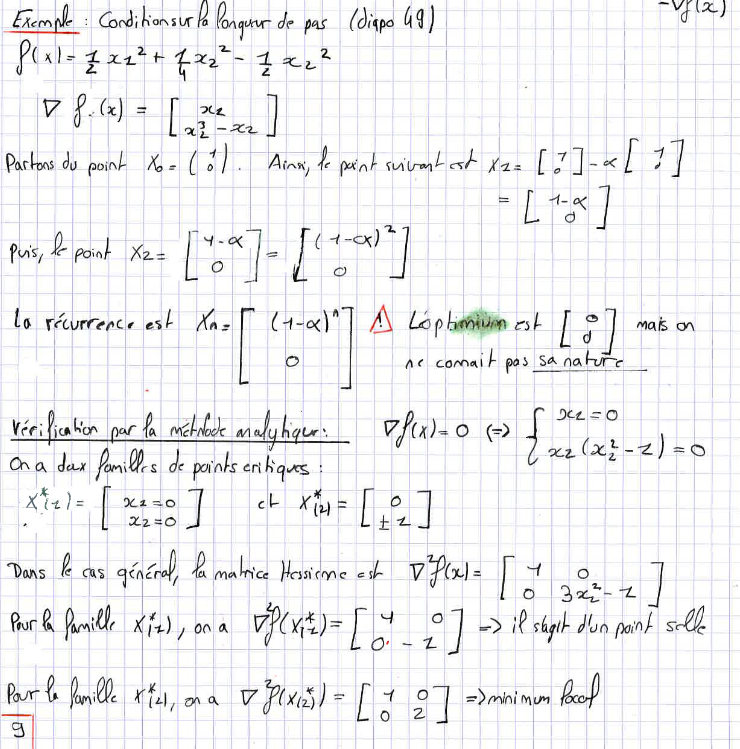 -∇f(x)
Exemple : Condition sur la longueur de pas (diapo 49)
f(x) = 1/2 x1² + 1/4 x2⁴ - 1/2 x2²
∇ f(x) = [ x1 ; x2³ - x2 ]
Partons du point X0 = (1 ; 0). Ainsi, le point suivant est X1 = [1 ; 0] - α [1 ; 0]
= [1-α ; 0]
puis, le point X2 = [1-α ; 0] = [(1-α)² ; 0]
la récurrence est Xn = [(1-α)ⁿ ; 0] ⚠ L'optimium est [0 ; 0] mais on
ne connait pas sa nature
Vérification par la méthode analytique : ∇f(x) = 0 (=) { x1 = 0 ; x2 (x2² - 1) = 0
On a deux familles de points critiques :
X*(1) = [ x1 = 0 ; x2 = 0 ] et X*(2) = [ 0 ; ±1 ]
Dans le cas général, la matrice Hessienne est ∇²f(x) = [ 1 0 ; 0 3x2² - 1 ]
Pour la famille X*(1), on a ∇²f(X*(1)) = [ 1 0 ; 0 -1 ] => il s'agit d'un point selle
Pour la famille X*(2), on a ∇²f(X*(2)) = [ 1 0 ; 0 2 ] => minimum local
9